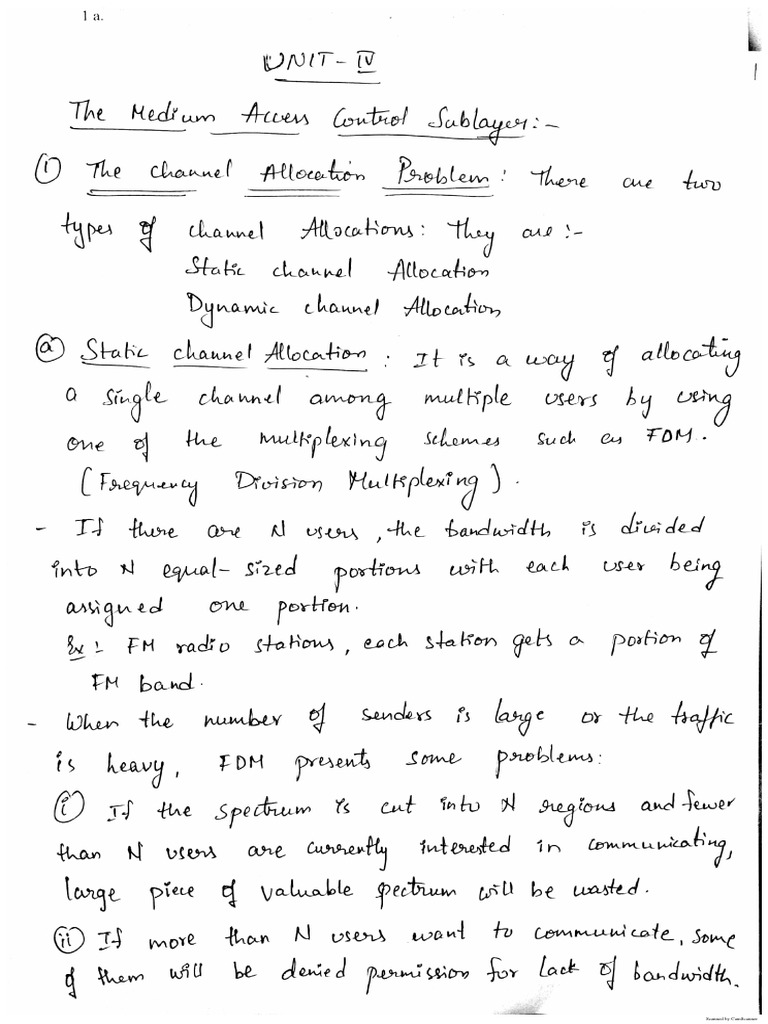 1 a.
UNIT - IV
1
The Medium Access Control Sublayer:-
① The channel Allocation Problem: There are two
types of channel Allocations: They are:-
Static channel Allocation
Dynamic channel Allocation
ⓐ Static channel Allocation: It is a way of allocating
a single channel among multiple users by using
one of the multiplexing schemes such as FDM.
(Frequency Division Multiplexing).
- If there are N users, the bandwidth is divided
into N equal-sized portions with each user being
assigned one portion.
Ex: FM radio stations, each station gets a portion of
FM band.
- When the number of senders is large or the traffic
is heavy, FDM presents some problems:
(i) If the spectrum is cut into N regions and fewer
than N users are currently interested in communicating,
large piece of valuable spectrum will be wasted.
(ii) If more than N users want to communicate, some
of them will be denied permission for lack of bandwidth.
Scanned by CamScanner